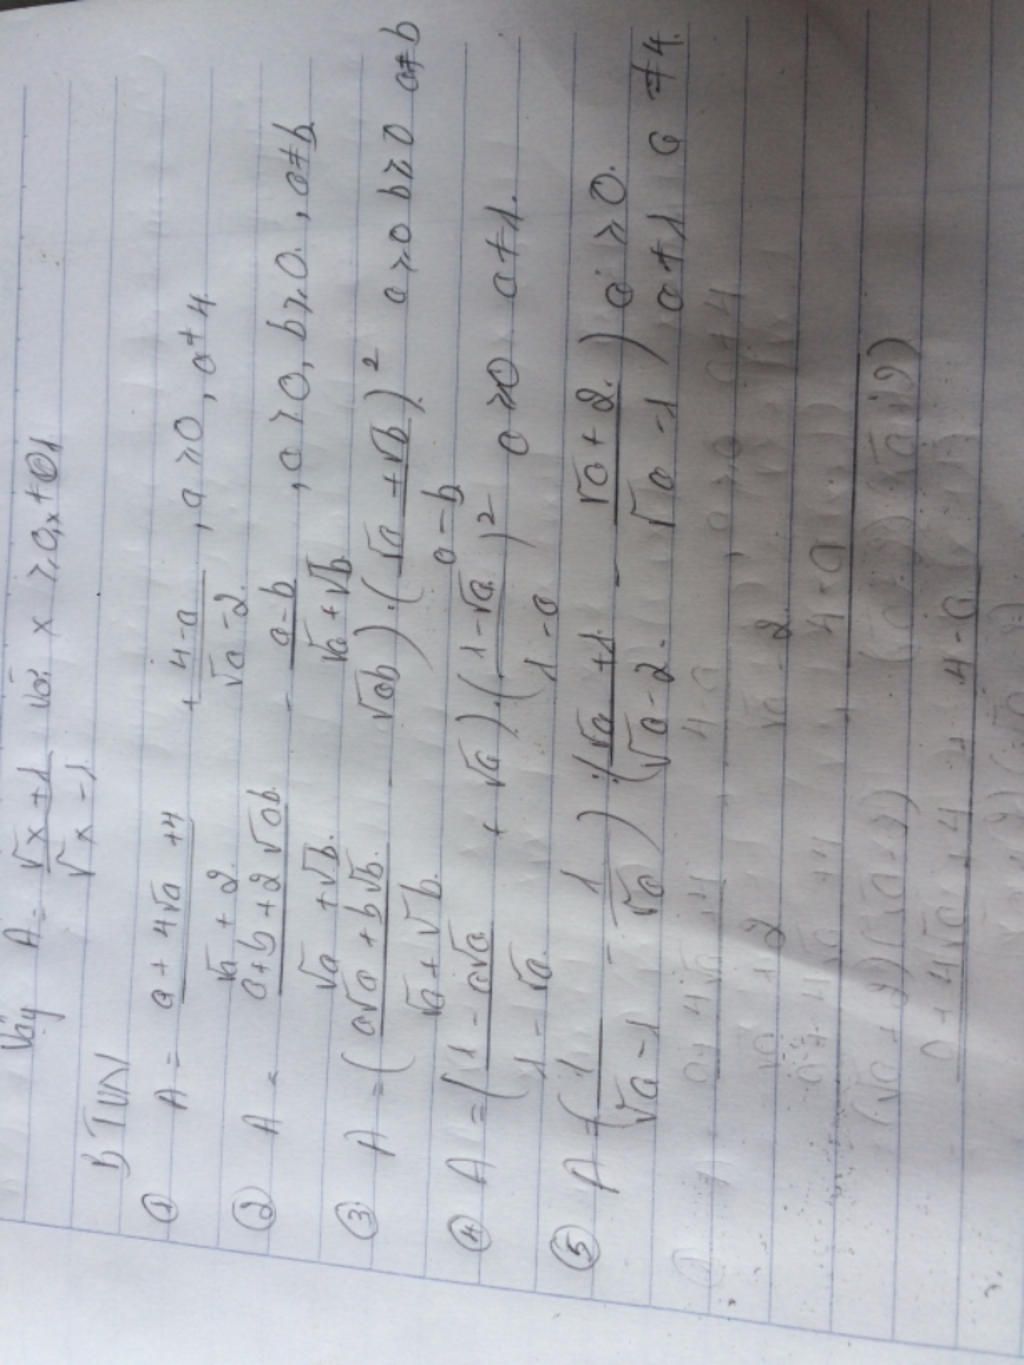 Vậy A = √x + 1 / √x - 1 với x ≥ 0, x ≠ 1
BTVN
① A = a + 4√a + 4 / √a + 2 + 4 - a / √a - 2 , a ≥ 0 , a ≠ 4
② A = a + b + 2√ab / √a + √b - a - b / √a + √b , a ≥ 0, b ≥ 0. , a ≠ b
③ A = ( a√a + b√b / √a + √b - √ab ) . ( √a + √b / a - b )² a ≥ 0 b ≥ 0 a ≠ b
④ A = ( 1 - a√a / 1 - √a + √a ) . ( 1 - √a / 1 - a )² a ≥ 0 a ≠ 1.
⑤ A = ( 1 / √a - 1 - 1 / √a ) : ( √a + 1 / √a - 2 - √a + 2 / √a - 1 ) a ≥ 0. a ≠ 1 a ≠ 4.